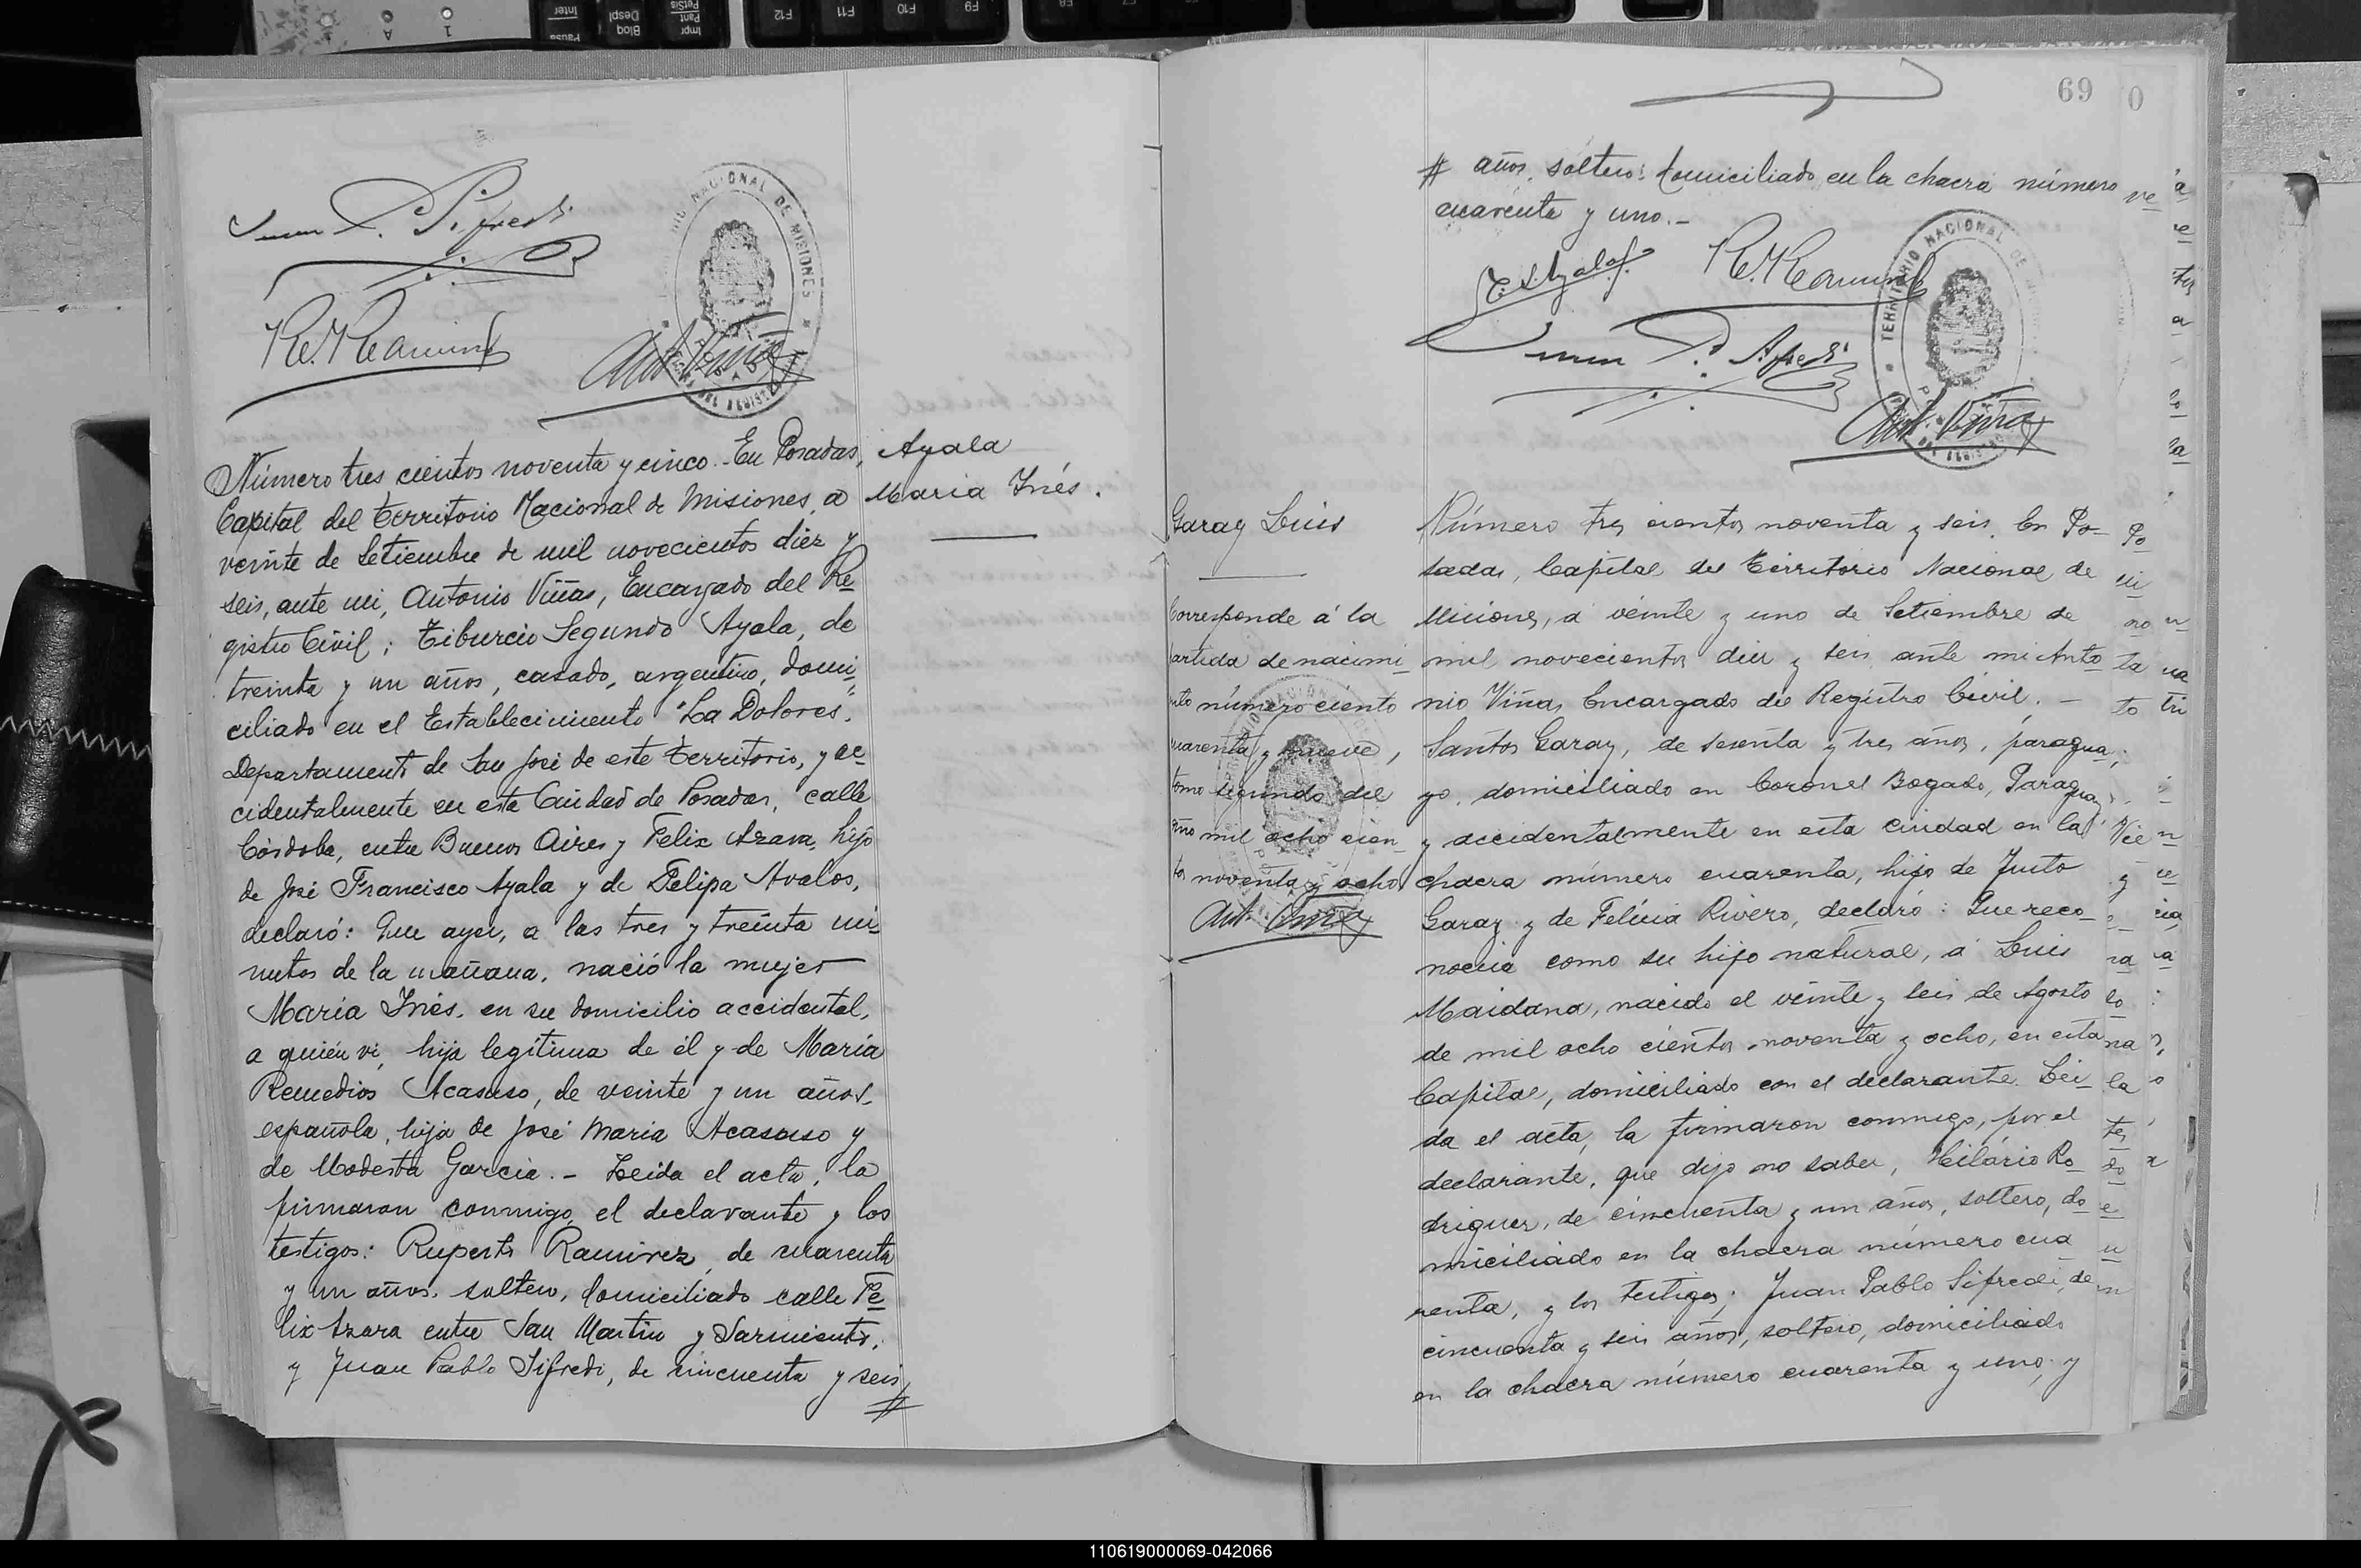 Número tres cientos noventa y cinco.- En Posadas,
Capital del Territorio Nacional de Misiones, a
veinte de Setiembre de mil novecientos diez y
seis, ante mi, Antonio Viñas, Encargado del Re-
gistro Civil; Tiburcio Segundo Ayala, de
treinta y un años, casado, argentino, domi-
ciliado en el Establecimiento "La Dolores",
Departamento de San José de este Territorio, y ac-
cidentalmente en esta Ciudad de Posadas, calle
Córdoba, entre Buenos Aires y Felix Azara, hijo
de José Francisco Ayala y de Felipa Avalos,
declaró: Que ayer, a las tres y treinta mi-
nutos de la mañana, nació la mujer
María Inés, en su domicilio accidental,
a quién vi, hija legítima de él y de María
Remedios Acasuso, de veinte y un años,
española, hija de José Maria Acasuso y
de Modesta Garcia.- Leida el acta, la
firmaron conmigo, el declarante y los
testigos: Ruperto Ramirez, de cuarenta
y un años, soltero, domiciliado calle Fe-
lix Azara entre San Martin y Sarmiento,
y Juan Pablo Sifredi, de cincuenta y seis
#
Ayala
Maria Inés.
69
0
# años, soltero: domiciliado en la chacra número
cuarenta y uno.-
T. S. Ayala
R. Ramirez
TERRITORIO NACIONAL DE
Ant. Viñas
Garay Luis
Corresponde á la
partida de nacimi-
nto número ciento
cuarenta y nueve,
tomo segundo del
año mil ocho cien-
tos noventa y ocho
Ant. Viñas
Número tres cientos noventa y seis. En Po-
sadas, Capital del Territorio Nacional de
Misiones, á veinte y uno de Setiembre de
mil novecientos diez y seis, ante mi Anto
nio Viñas Encargado del Registro Civil. -
Santos Garay, de sesenta y tres años, paragua-
yo, domiciliado en Coronel Bogado, Paraguay,
y accidentalmente en esta ciudad en la
chacra número cuarenta, hijo de Justo
Garay y de Felicia Rivero, declaró: Que reco-
nocia como su hijo natural, á Luis
Maidana, nacido el veinte y seis de Agosto
de mil ocho cientos noventa y ocho, en esta
Capital, domiciliado con el declarante. Lei-
da el acta, la firmaron conmigo, por el
declarante, que dijo no saber, Hilário Ro-
driguez, de cincuenta y un años, soltero, do-
miciliado en la chacra número cua
renta, y los testigos; Juan Pablo Sifredi, de
cincuenta y seis años, soltero, domiciliado
en la chacra número cuarenta y uno; y
110619000069-042066